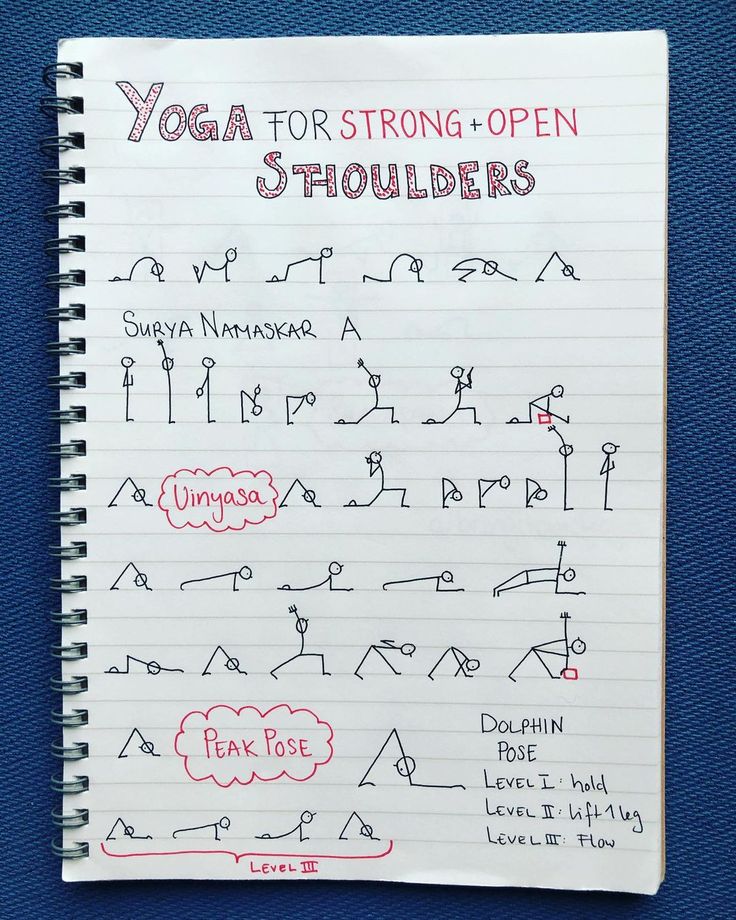 YOGA FOR STRONG + OPEN
SHOULDERS
SURYA NAMASKAR A
Vinyasa
PEAK POSE
DOLPHIN
POSE
LEVEL I: hold
LEVEL II: lift 1 leg
LEVEL III: Flow
LEVEL III